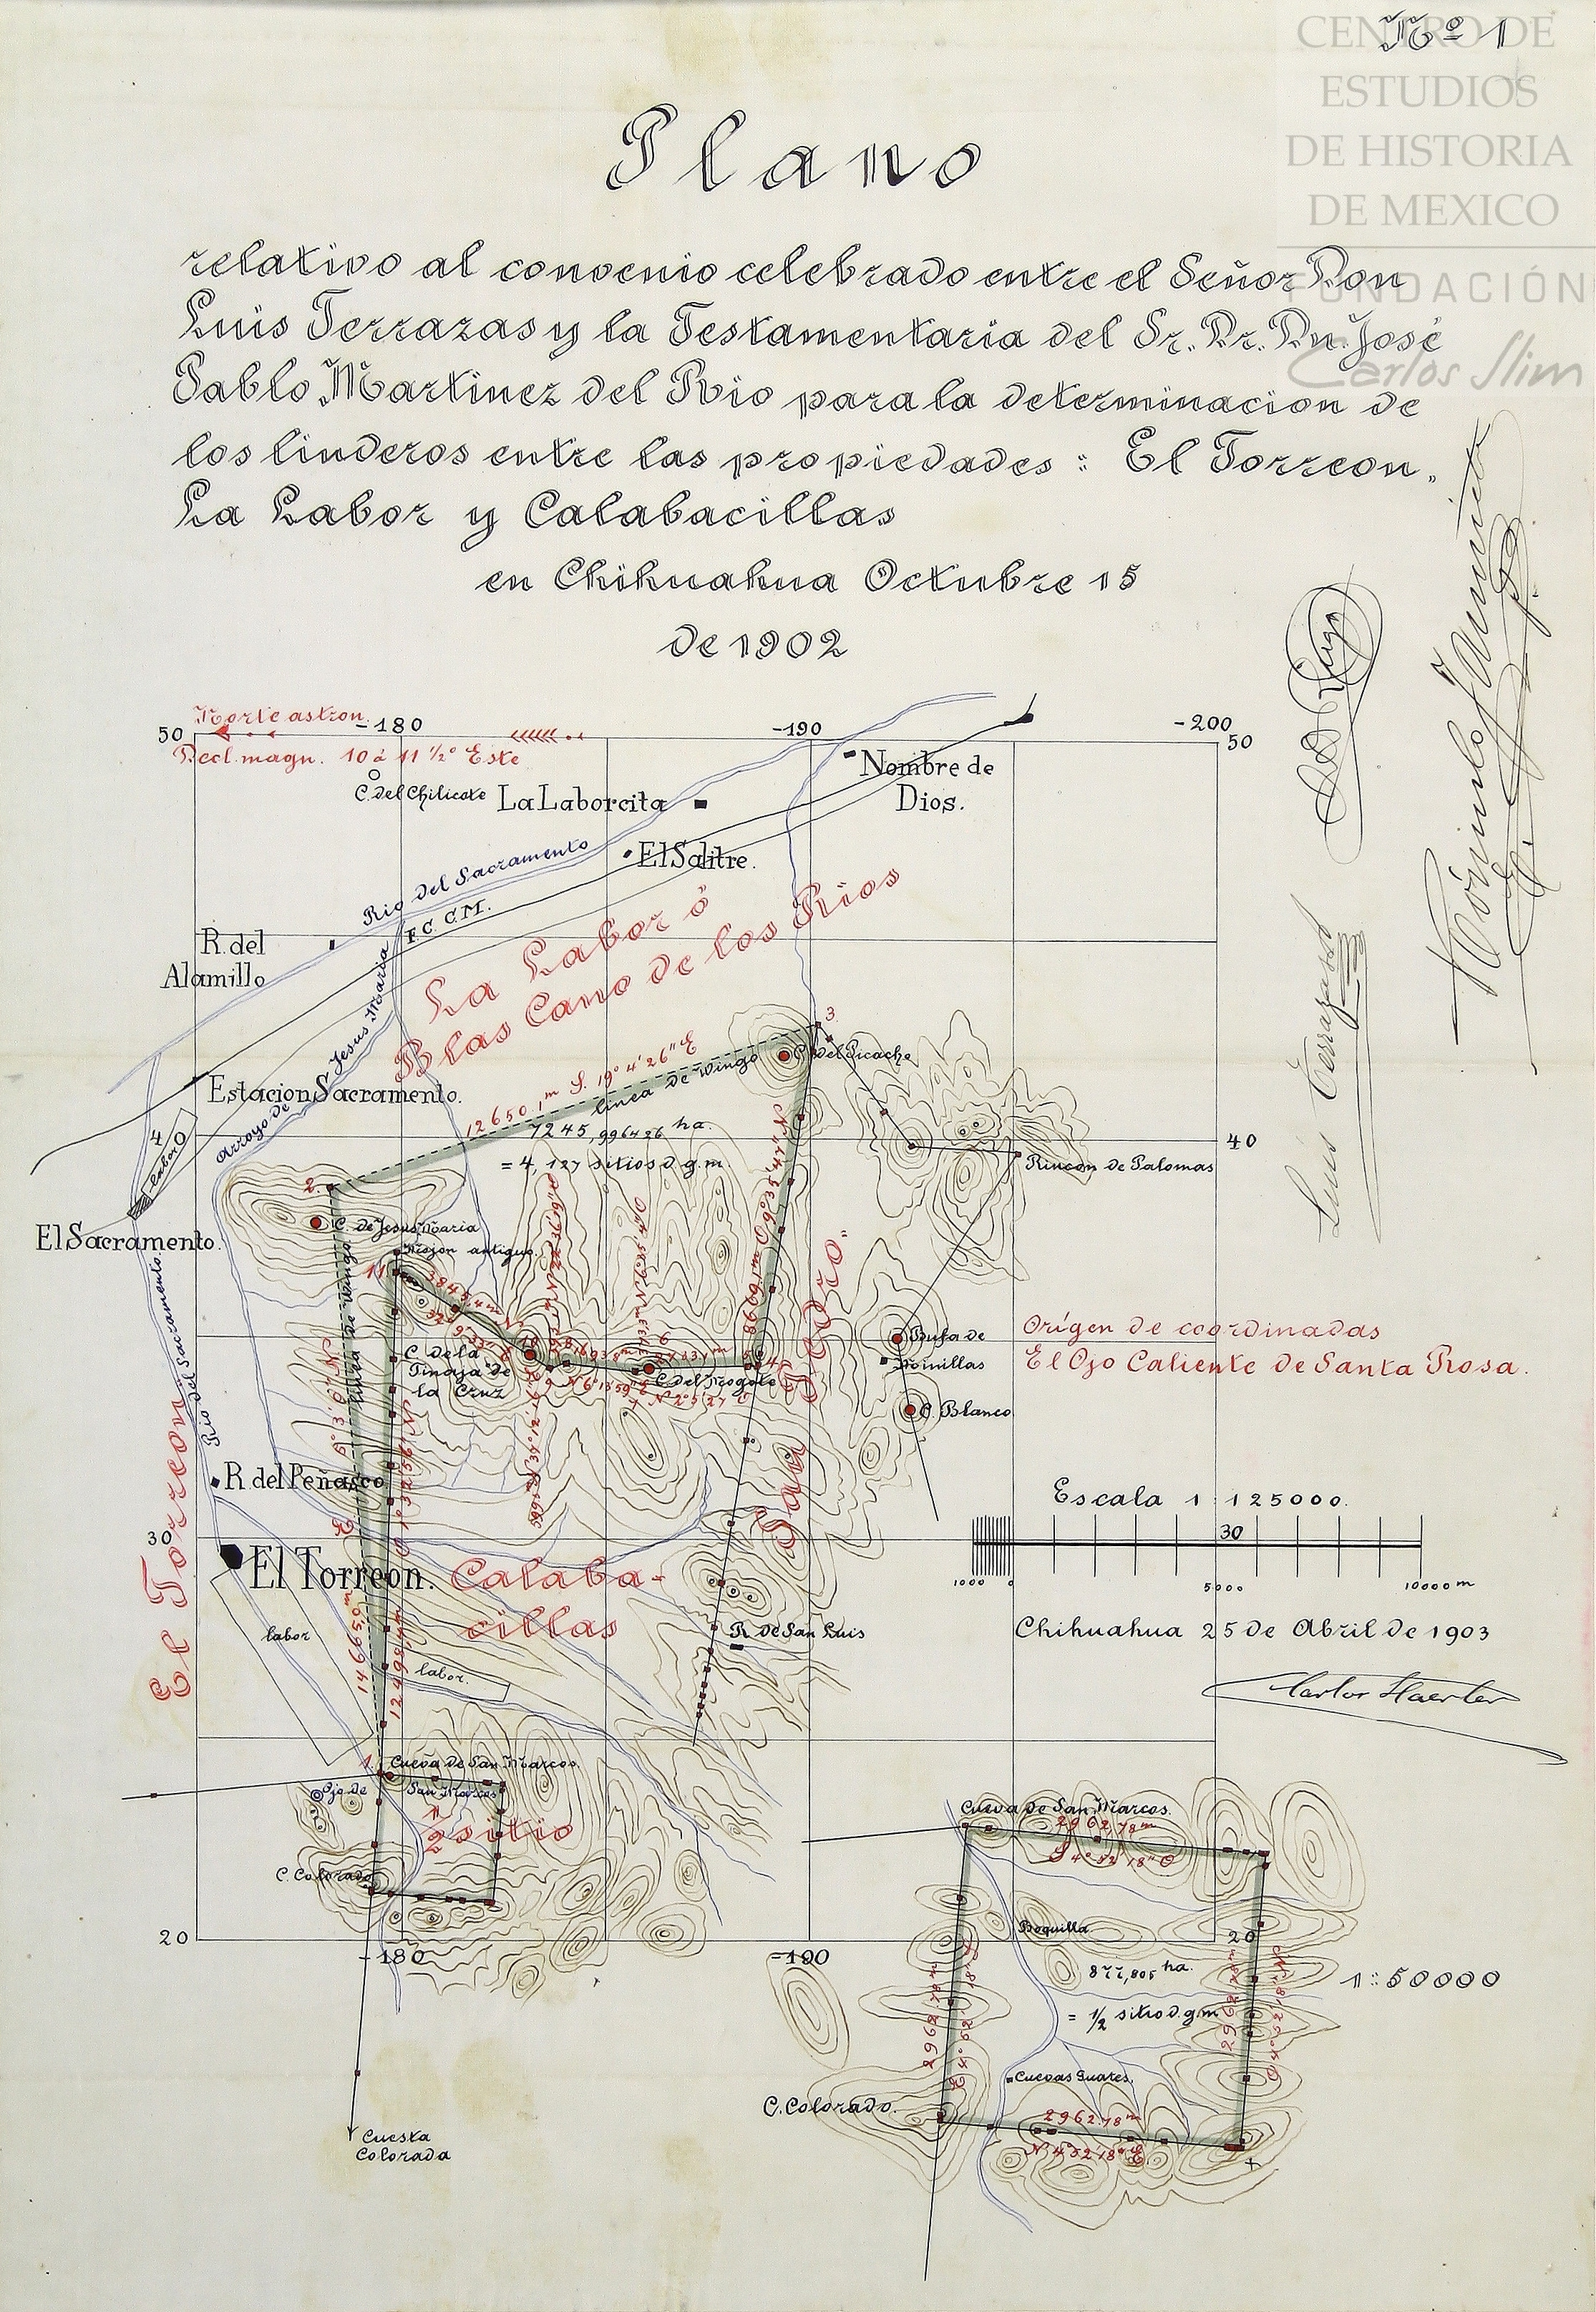 Nº 1
CENTRO DE
ESTUDIOS
DE HISTORIA
DE MEXICO
FUNDACIÓN
Carlos Slim
Plano
relativo al convenio celebrado entre el Señor Don
Luis Terrazas y la Testamentaria del Sr. Dr. Dn. José
Pablo Martinez del Rio para la determinacion de
los linderos entre las propiedades: El Torreon,
La Labor y Calabacillas
en Chihuahua Octubre 15
de 1902
Norte astron.
-180
-190
-200
50
50
Decl. magn. 10 á 11 1/2° Este
C. del Chilicote
La Laborcita
Nombre de
Dios.
El Salitre.
Rio del Sacramento
F.C.C.M.
R. del
Alamillo
La Labor ó
Blas Cano de los Rios
Arroyo de Jesus Maria
Estacion Sacramento.
labor
El Sacramento.
12650,1 m S. 19° 4' 26" E
linea de Wingo
7245,996426 ha.
= 4,127 sitios d. g. m.
3
C. del Picacho
40
Rincon de Palomas
2.
C. de Jesus Maria
Mojon antiguo
11
linea de Wingo
Rio del Sacramento
C. de la
Tinaja de
la Cruz
C. del Mogote
Bufa de
Minillas
C. Blanco
Orígen de coordinadas
El Ojo Caliente de Santa Rosa.
R. del Peñasco
El Torreon
30
El Torreon.
Calaba-
cillas
labor
labor.
R. de San Luis
Escala 1:125000.
30
1000
0
5000
10000 m
Chihuahua 25 de Abril de 1903
1.
Cueva de San Marcos
Ojo de
San Marcos
1/2 sitio
C. Colorado
20
-180
-190
Cuesta
Colorada
Cueva de San Marcos.
2962,78 m
S 4° 52' 18" O
Boquilla
20
877,805 ha.
= 1/2 sitio d. g. m
1:50000
2962,78 m
2962,78 m
Cuevas Guares.
C. Colorado.
2962.78 m
N 4° 52' 18" E
Luis Terrazas